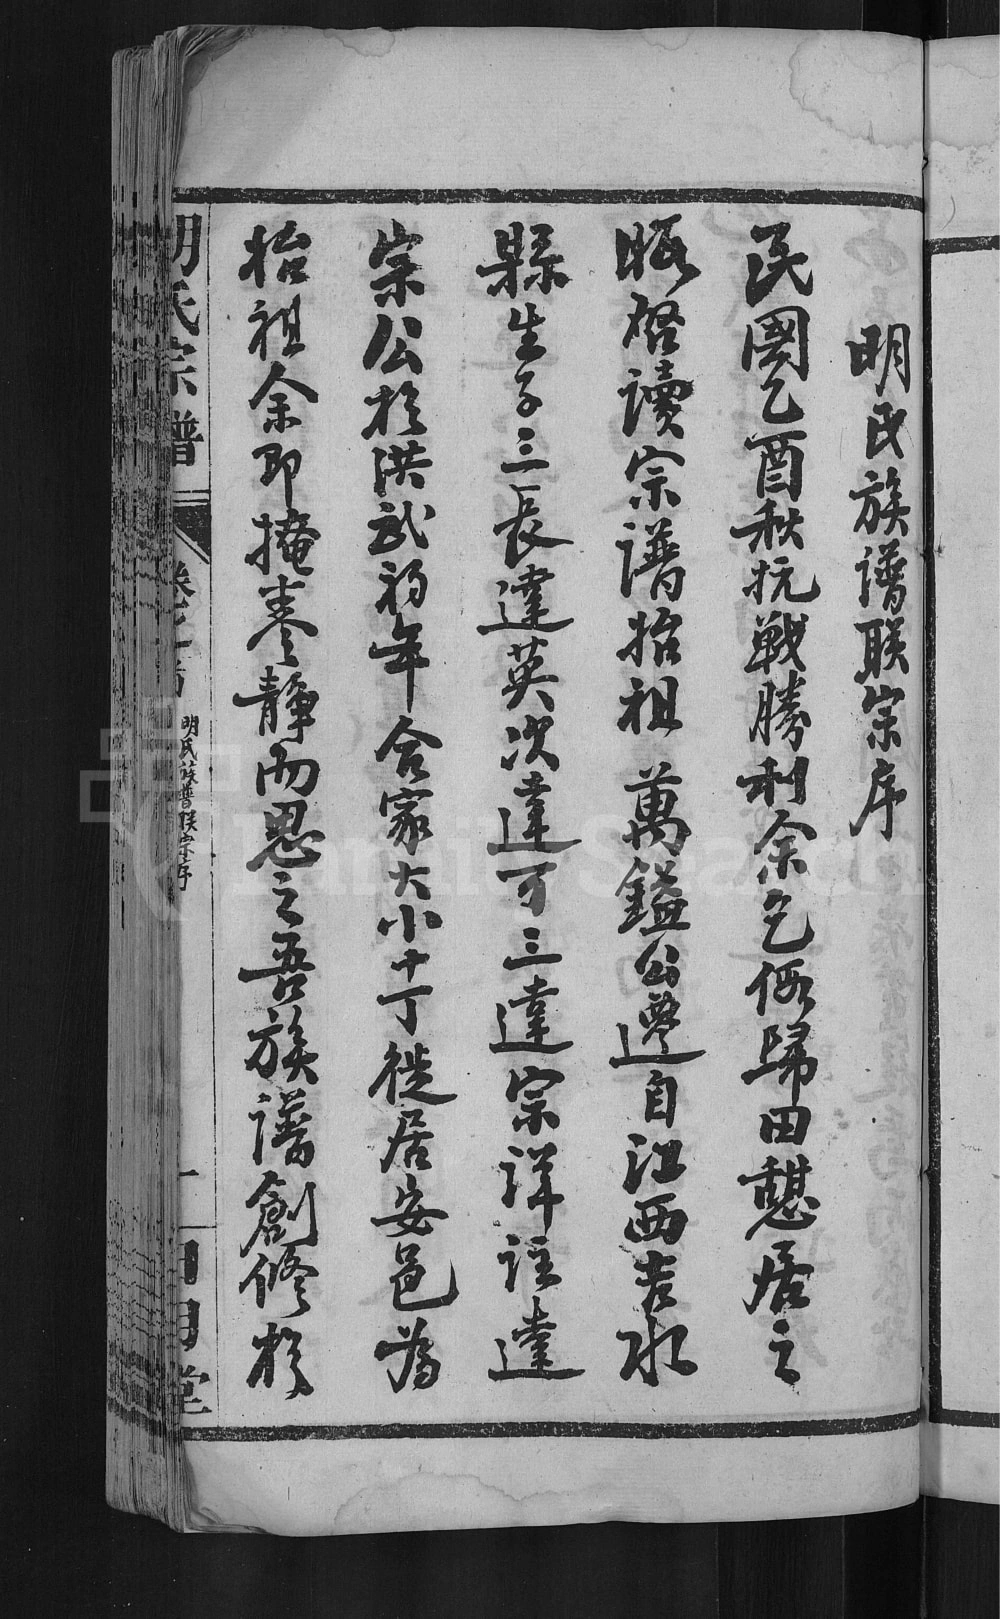 明氏族譜联宗序
民國乙酉秋抗戰勝利余乞假歸田憇居之
暇啓讀宗譜始祖 萬鎰公遷自江西吉水
縣生子三長達英次達可三達宗詳註達
宗公於洪武初年合家大小十丁徙居安邑為
始祖余即掩卷靜而思之吾族譜創修於
明氏宗譜
卷之首
明氏族譜联宗序
一
明堂
FamilySearch